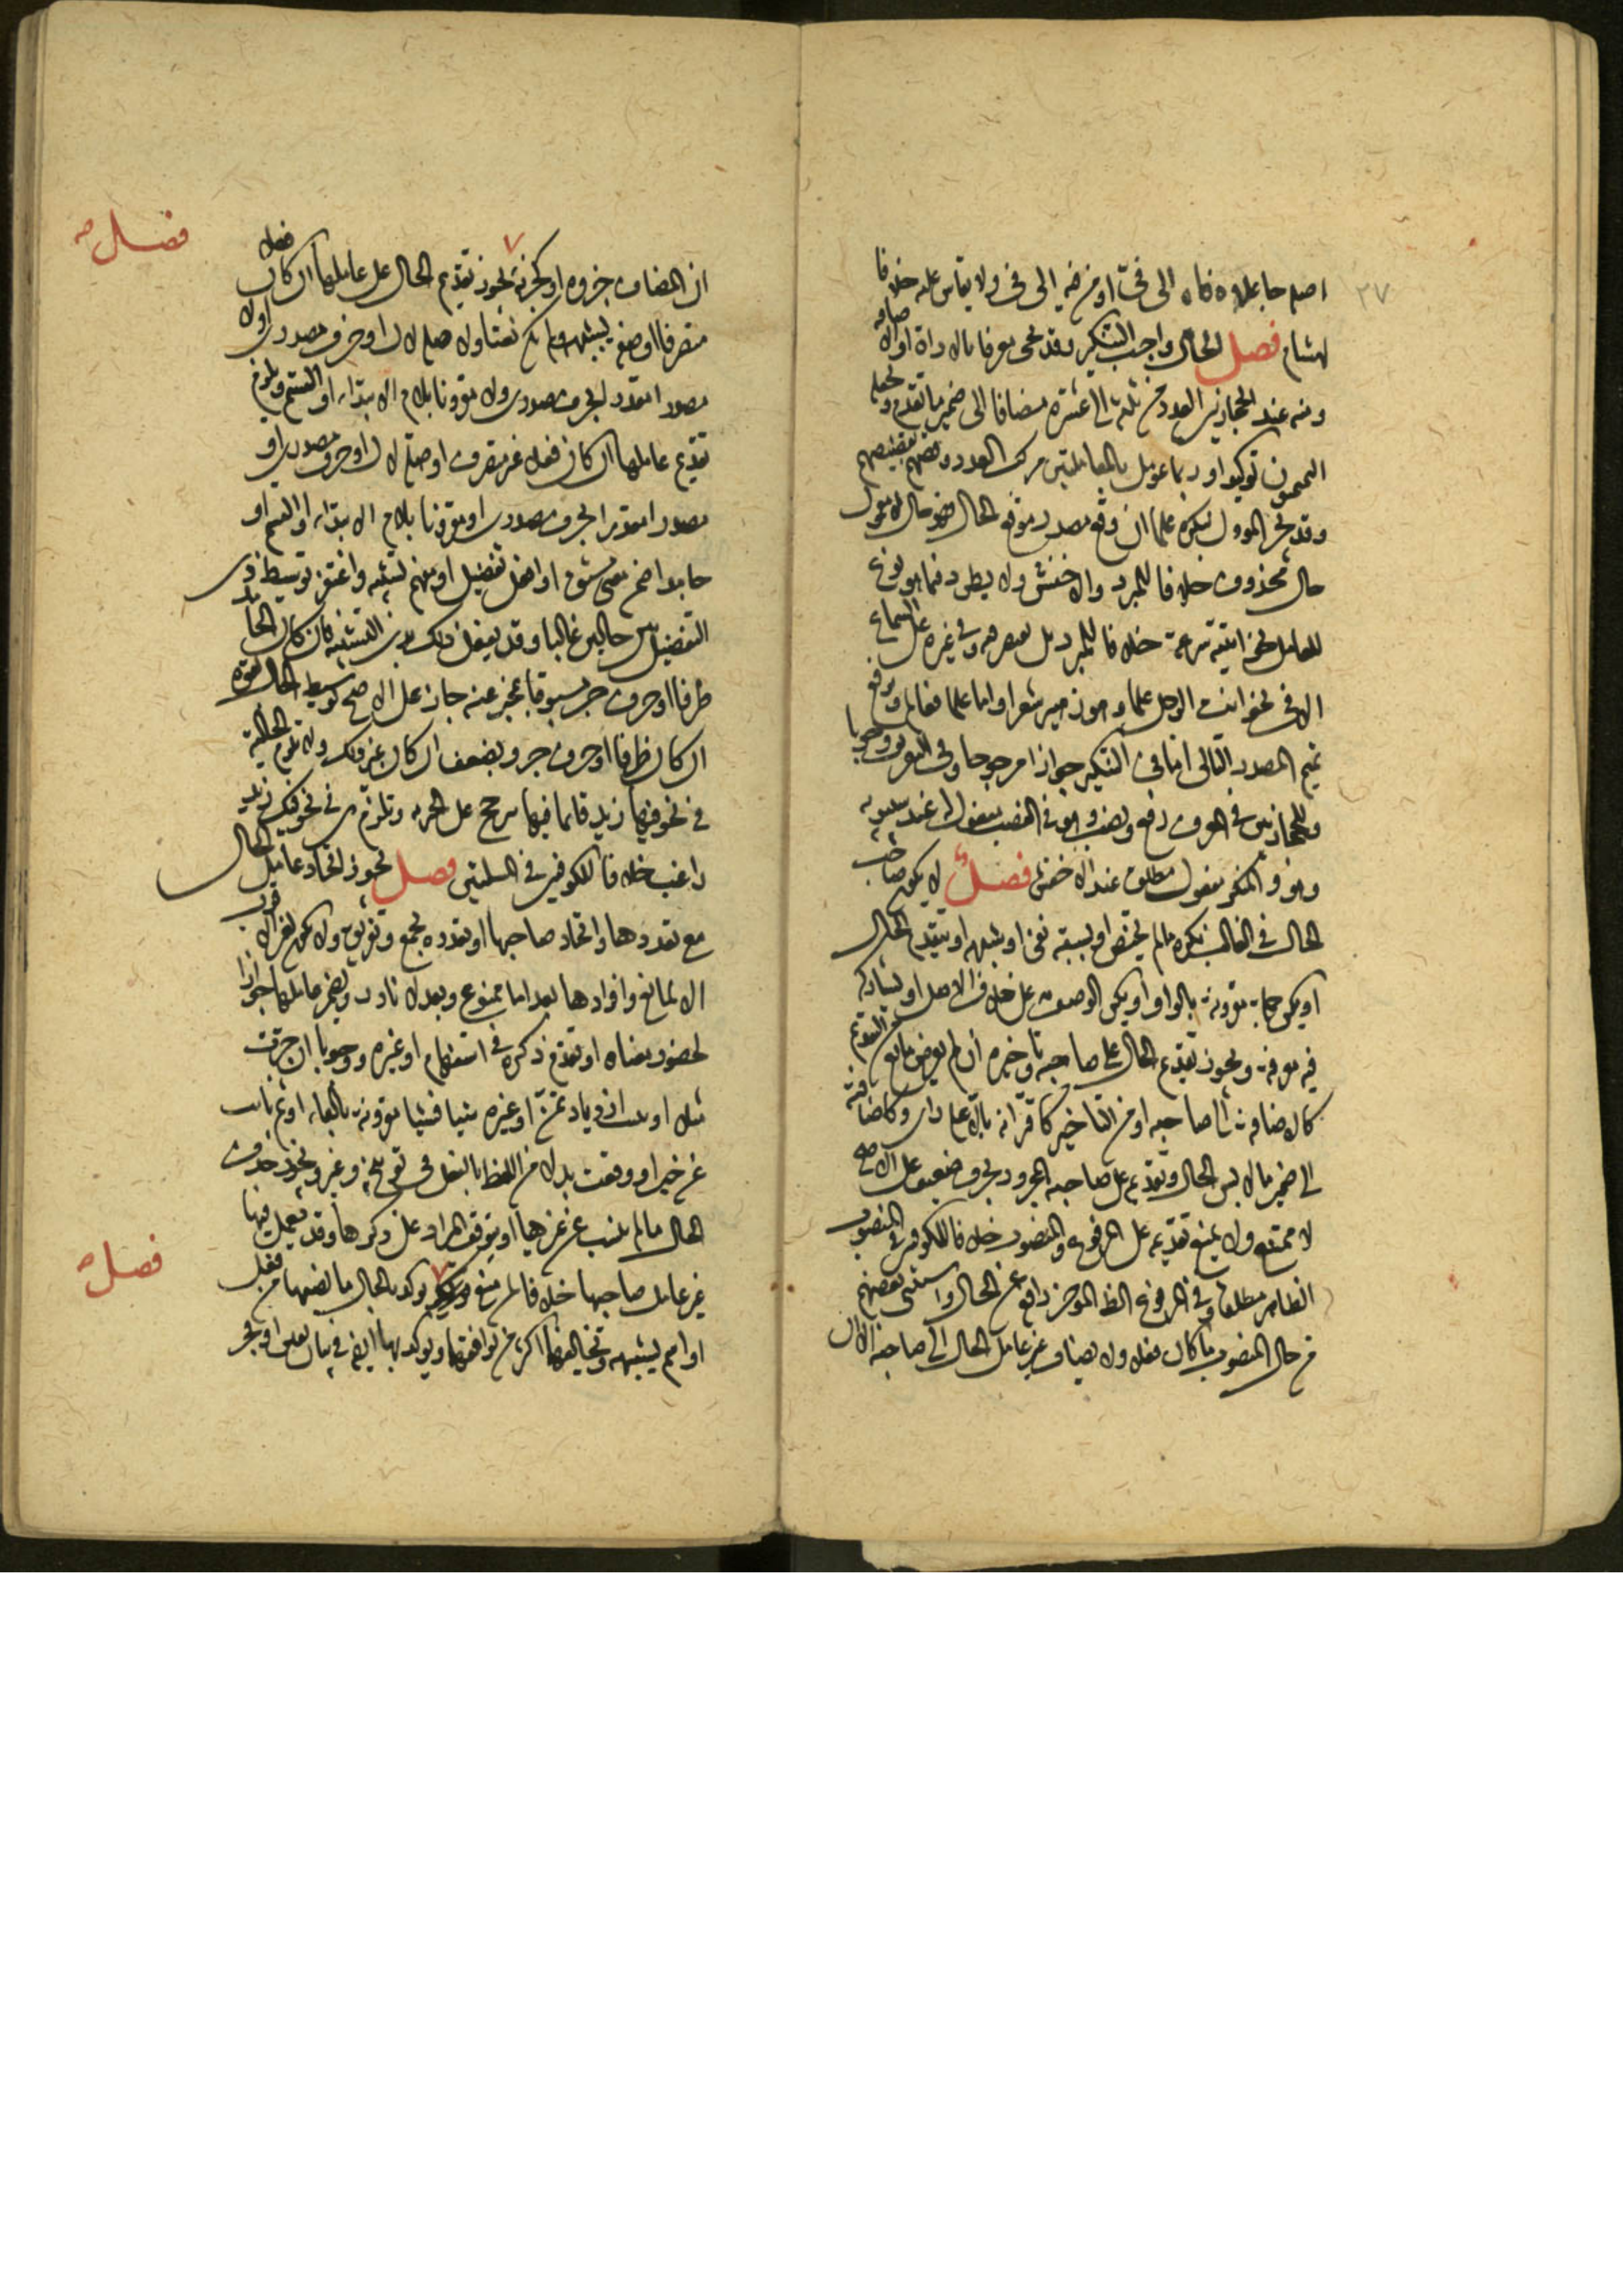 ٣٧
اصله جاعلا فاه الى فىّ او من فيه الى فى ولا يقاس عليه خلافا
لهشام فصل الحال واجب التنكير وقد يجى معرفا بالاداة او الاضافة
ومنه عند الحجازيين العدد من ثلثة الى عشرة مضافا الى ضمير ما تقدم ويجعله
التميميون توكيدا وربما عومل بالمعاملتين مركب العدد وقضهم بقضيضهم
وقد يجئ المؤول بنكرة علما ان وقع مصدر موقع الحال فهو حال لا معمول
حال محذوف خلافا للمبرد والاخفش ولا يطرد فيما هو نوع
للعامل نحو اتيته سرعة خلافا للمبرد بل يقتصر فيه وفي غيره على السماع
الا فى نحو انت الرجل علما وهو زهير شعرا واما علما فعالم وترفع
تميم المصدر التالى اما فى التنكير جوازا مرجوحا وفى التعريف وجوبا
وللحجازيين فى المعرف رفع ونصب وهو فى النصب مفعول له عند سيبويه
وهو والمنكر مفعول مطلق عند الاخفش فصل لا يكون صاحب
الحال فى الغالب نكرة ما لم يختص او يسبقه نفى او شبهه او يتقدم الحال
او يكن جملة مقرونة بالواو او يكن الوصف على خلاف الاصل او يشاركه
فيه معرفة ويجوز تقديم الحال على صاحبه وتاخيره ان لم يعرض مانع من التقديم
كالاضافة الى صاحبه او من التاخير كاقترانه بالا على راى وكاضافته
الى ضمير ما لابس الحال وتقديمه على صاحبه المجرور بحرف ضعيف على الاصح
لا ممتنع ولا يمتنع تقديمه على المرفوع والمنصوب خلافا للكوفيين فى المنصوب
الظاهر مطلقا وفى المرفوع الظاهر المؤخر رافعه عن الحال واستثنى بعضهم
من حال المنصوب ما كان فعلا ولا يضاف غير عامل الحال الى صاحبه الا ان
ان المضاف جزوه او كجزئه ٧ يجوز تقديم الحال على عاملها ان كان فعلا
متصرفا او صفة تشبهه ولم يكن نعتا ولا صلة لال او حرف مصدرى او لا
مصدرا مقدرا بحرف مصدرى ولا مقرونا بلام الابتداء او القسم ويلزم
تقديم عاملها ان كان فعلا غير متصرف او صلة لال او حرف مصدرى او
مصدرا مقدرا بحرف مصدرى او مقرونا بلام الابتداء او القسم او
جامدا ضمن معنى مشتق او افعل تفضيل او مفهم تشبيه واغتفر توسيط ذى
التفضيل بين حالين غالبا وقد يفعل ذلك بذى التشبيه فان كان الجامد
ظرفا او حرف جر مسبوقا بمخبر عنه جاز على الاصح توسيط الحال بقوة
ان كان ظرفا او حرف جر وبضعف ان كان غير ذلك ولا تلزم الحالية
فى نحو فيها زيد قائما فيها بل ترجح على الخبرية وتلزم هى فى نحو فيك زيد
راغب خلافا للكوفيين فى المسئلتين فصل يجوز اتحاد عامل الحال
مع تعددها واتحاد صاحبها او تعدده بجمع وتفريق ولا تكون لغير الاقرب
الا لمانع وافرادها بعد اما ممنوع وبعد لا نادر ويضمر عاملها جوازا
لحضور معناه او تقدم ذكره فى استفهام او غيره ووجوبا ان جرت
مثلا او بينت ازدياد ثمن او غيره شيا فشيا مقرونة بالفاء او ثم او نابت
عن خبر او وقعت بدلا من اللفظ بالفعل فى توبيخ وغيره ويجوز حذف
الحال ما لم تنب عن غيرها او يتوقف المراد على ذكرها وقد يعمل فيها
غير عامل صاحبها خلافا لمن منع ٧ يوكد بالحال ما نصبها من فعل
او اسم يشبهه وتخالفهما اكثر من توافقهما ويوكد بها ايضا فى بيان يقين او فخر
فصل صح
فصل صح